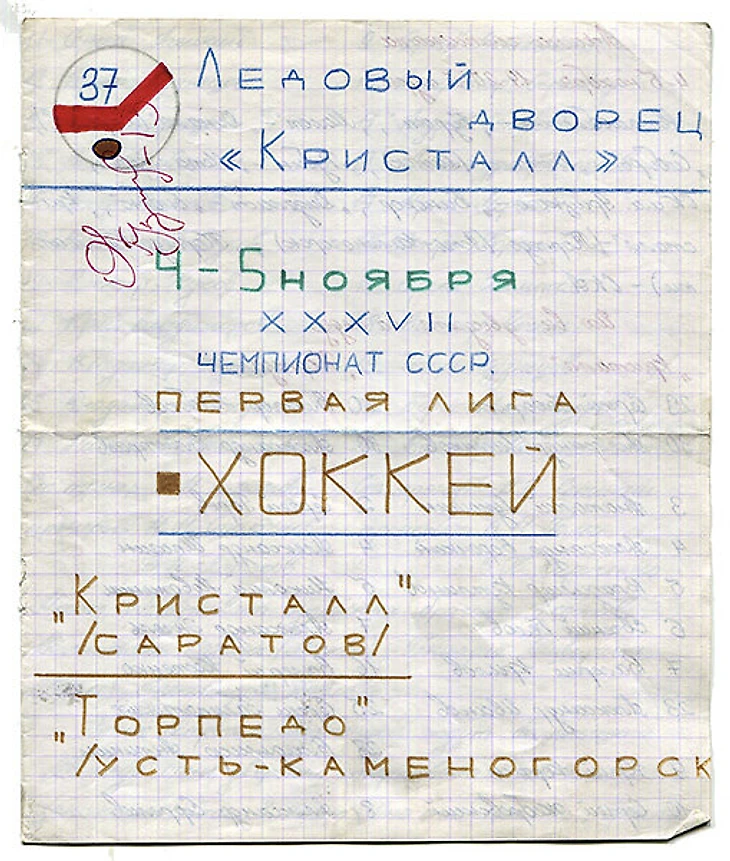 37
Ледовый
дворец
«Кристалл»
4-5 ноября
XXXVII
чемпионат СССР.
первая лига
хоккей
"Кристалл"
/саратов/
"Торпедо"
/усть-каменогорск